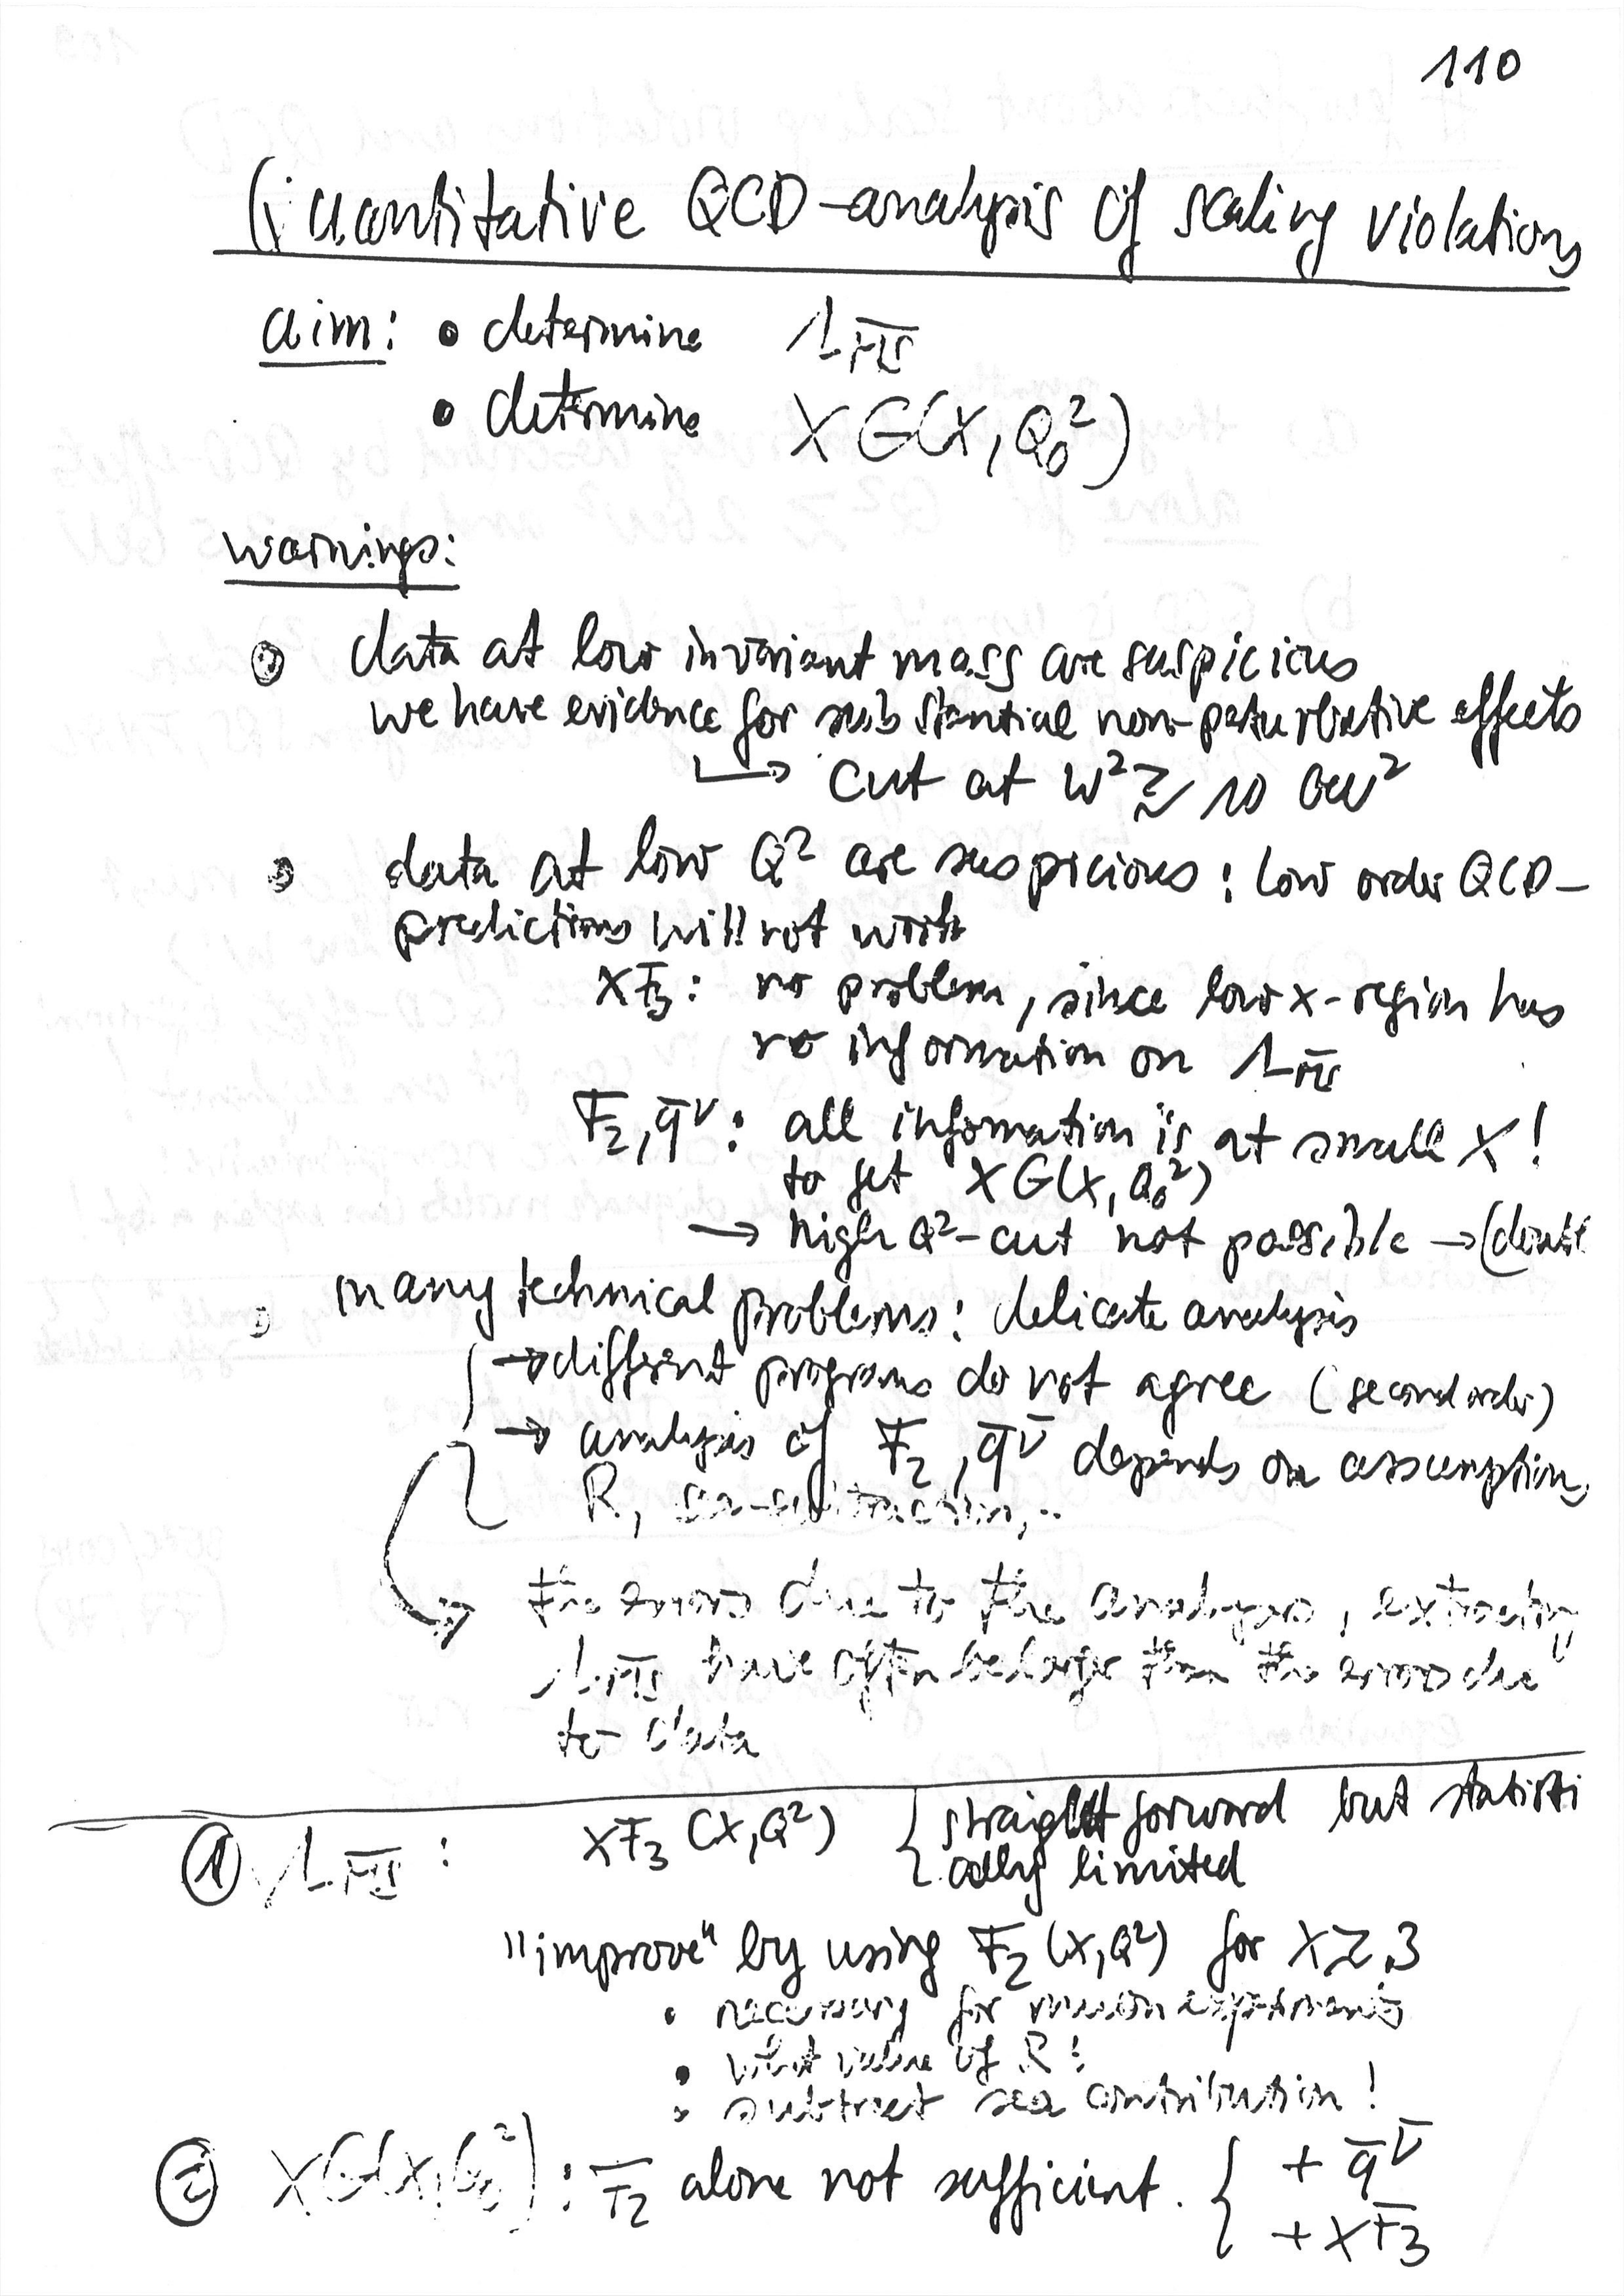 110
Quantitative QCD-analysis of scaling violations
aim: • determine Λ_MS̅
• determine XG(X,Q₀²)
warnings:
• data at low invariant mass are suspicious
we have evidence for substantial non-perturbative effects
↳ cut at W² ≳ 10 GeV²
• data at low Q² are suspicious: low order QCD-
predictions will not work
XF₃: no problem, since low x-region has
no information on Λ_MS̅
F₂, q̅^ν: all information is at small X!
to get XG(X,Q₀²)
→ high Q²-cut not possible →
• many technical problems: delicate analysis
→ different programs do not agree (second order)
→ analysis of F₂, q̅^ν̅ depends on assumptions
R, sea-subtraction,..
the errors due to the analysis, extracting
Λ_MS̅ have often be larger than the errors due
to data
① Λ_MS̅: XF₃(X,Q²) { straight forward but statisti
cally limited
"improve" by using F₂(X,Q²) for X ≳ .3
• necessary for muon experiments
• what value of R!
• subtract sea contribution!
② XG(X,Q₀²): F₂ alone not sufficient. { + q̅^ν̅
+ XF₃